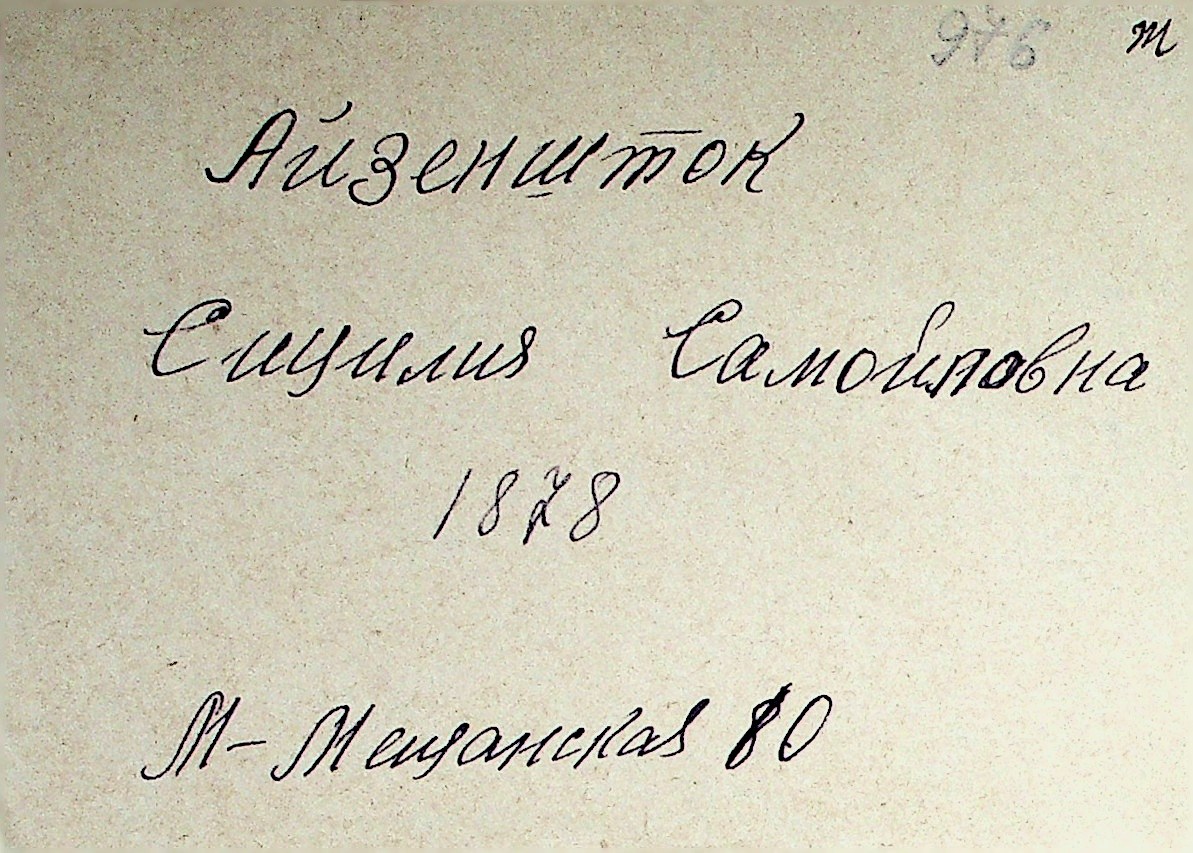 976 т
Айзеншток
Сицилия Самойловна
1878
М-Мещанская 80